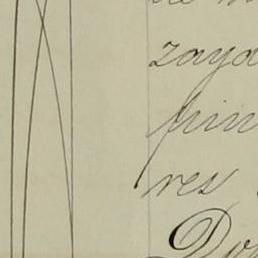 zaya
pin
res
Do